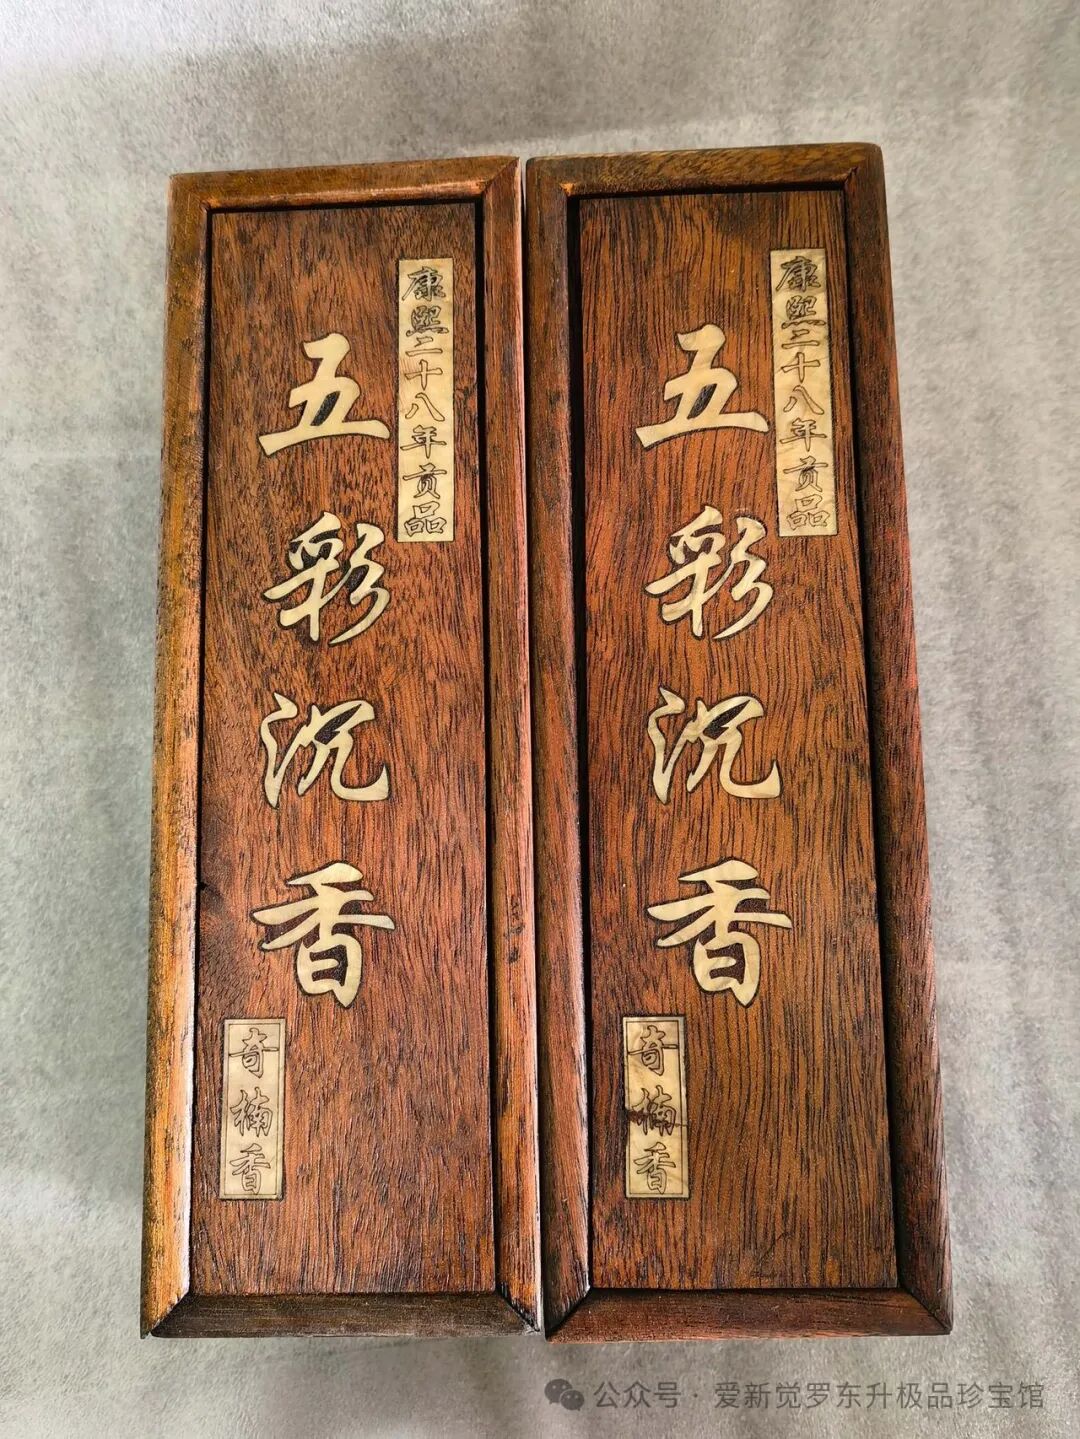 康熙二十八年贡品
五彩沉香
奇楠香
康熙二十八年贡品
五彩沉香
奇楠香
公众号·爱新觉罗东升极品珍宝馆